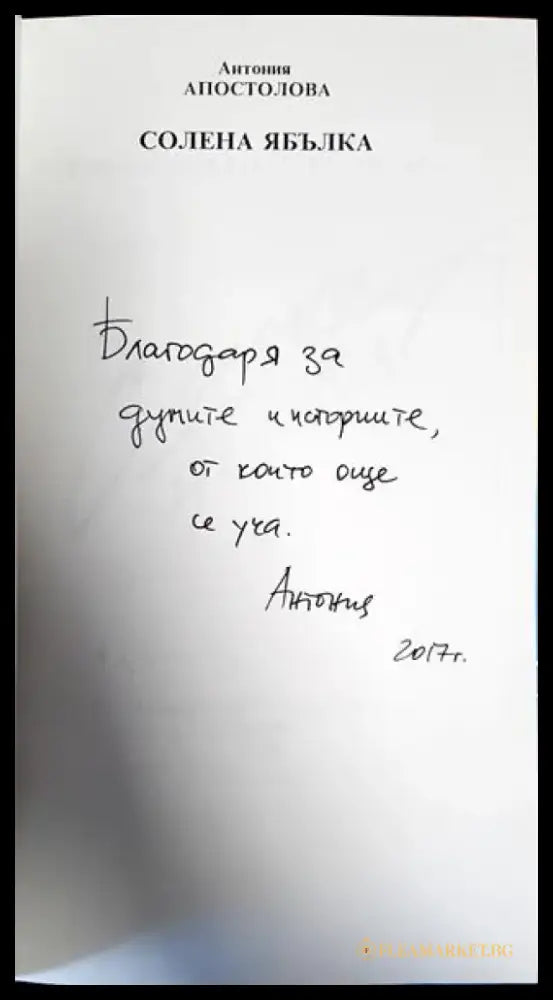 Антония
АПОСТОЛОВА
СОЛЕНА ЯБЪЛКА
Благодаря за
думите и историите,
от които още
се уча.
Антония
2017г.
FLEAMARKET.BG